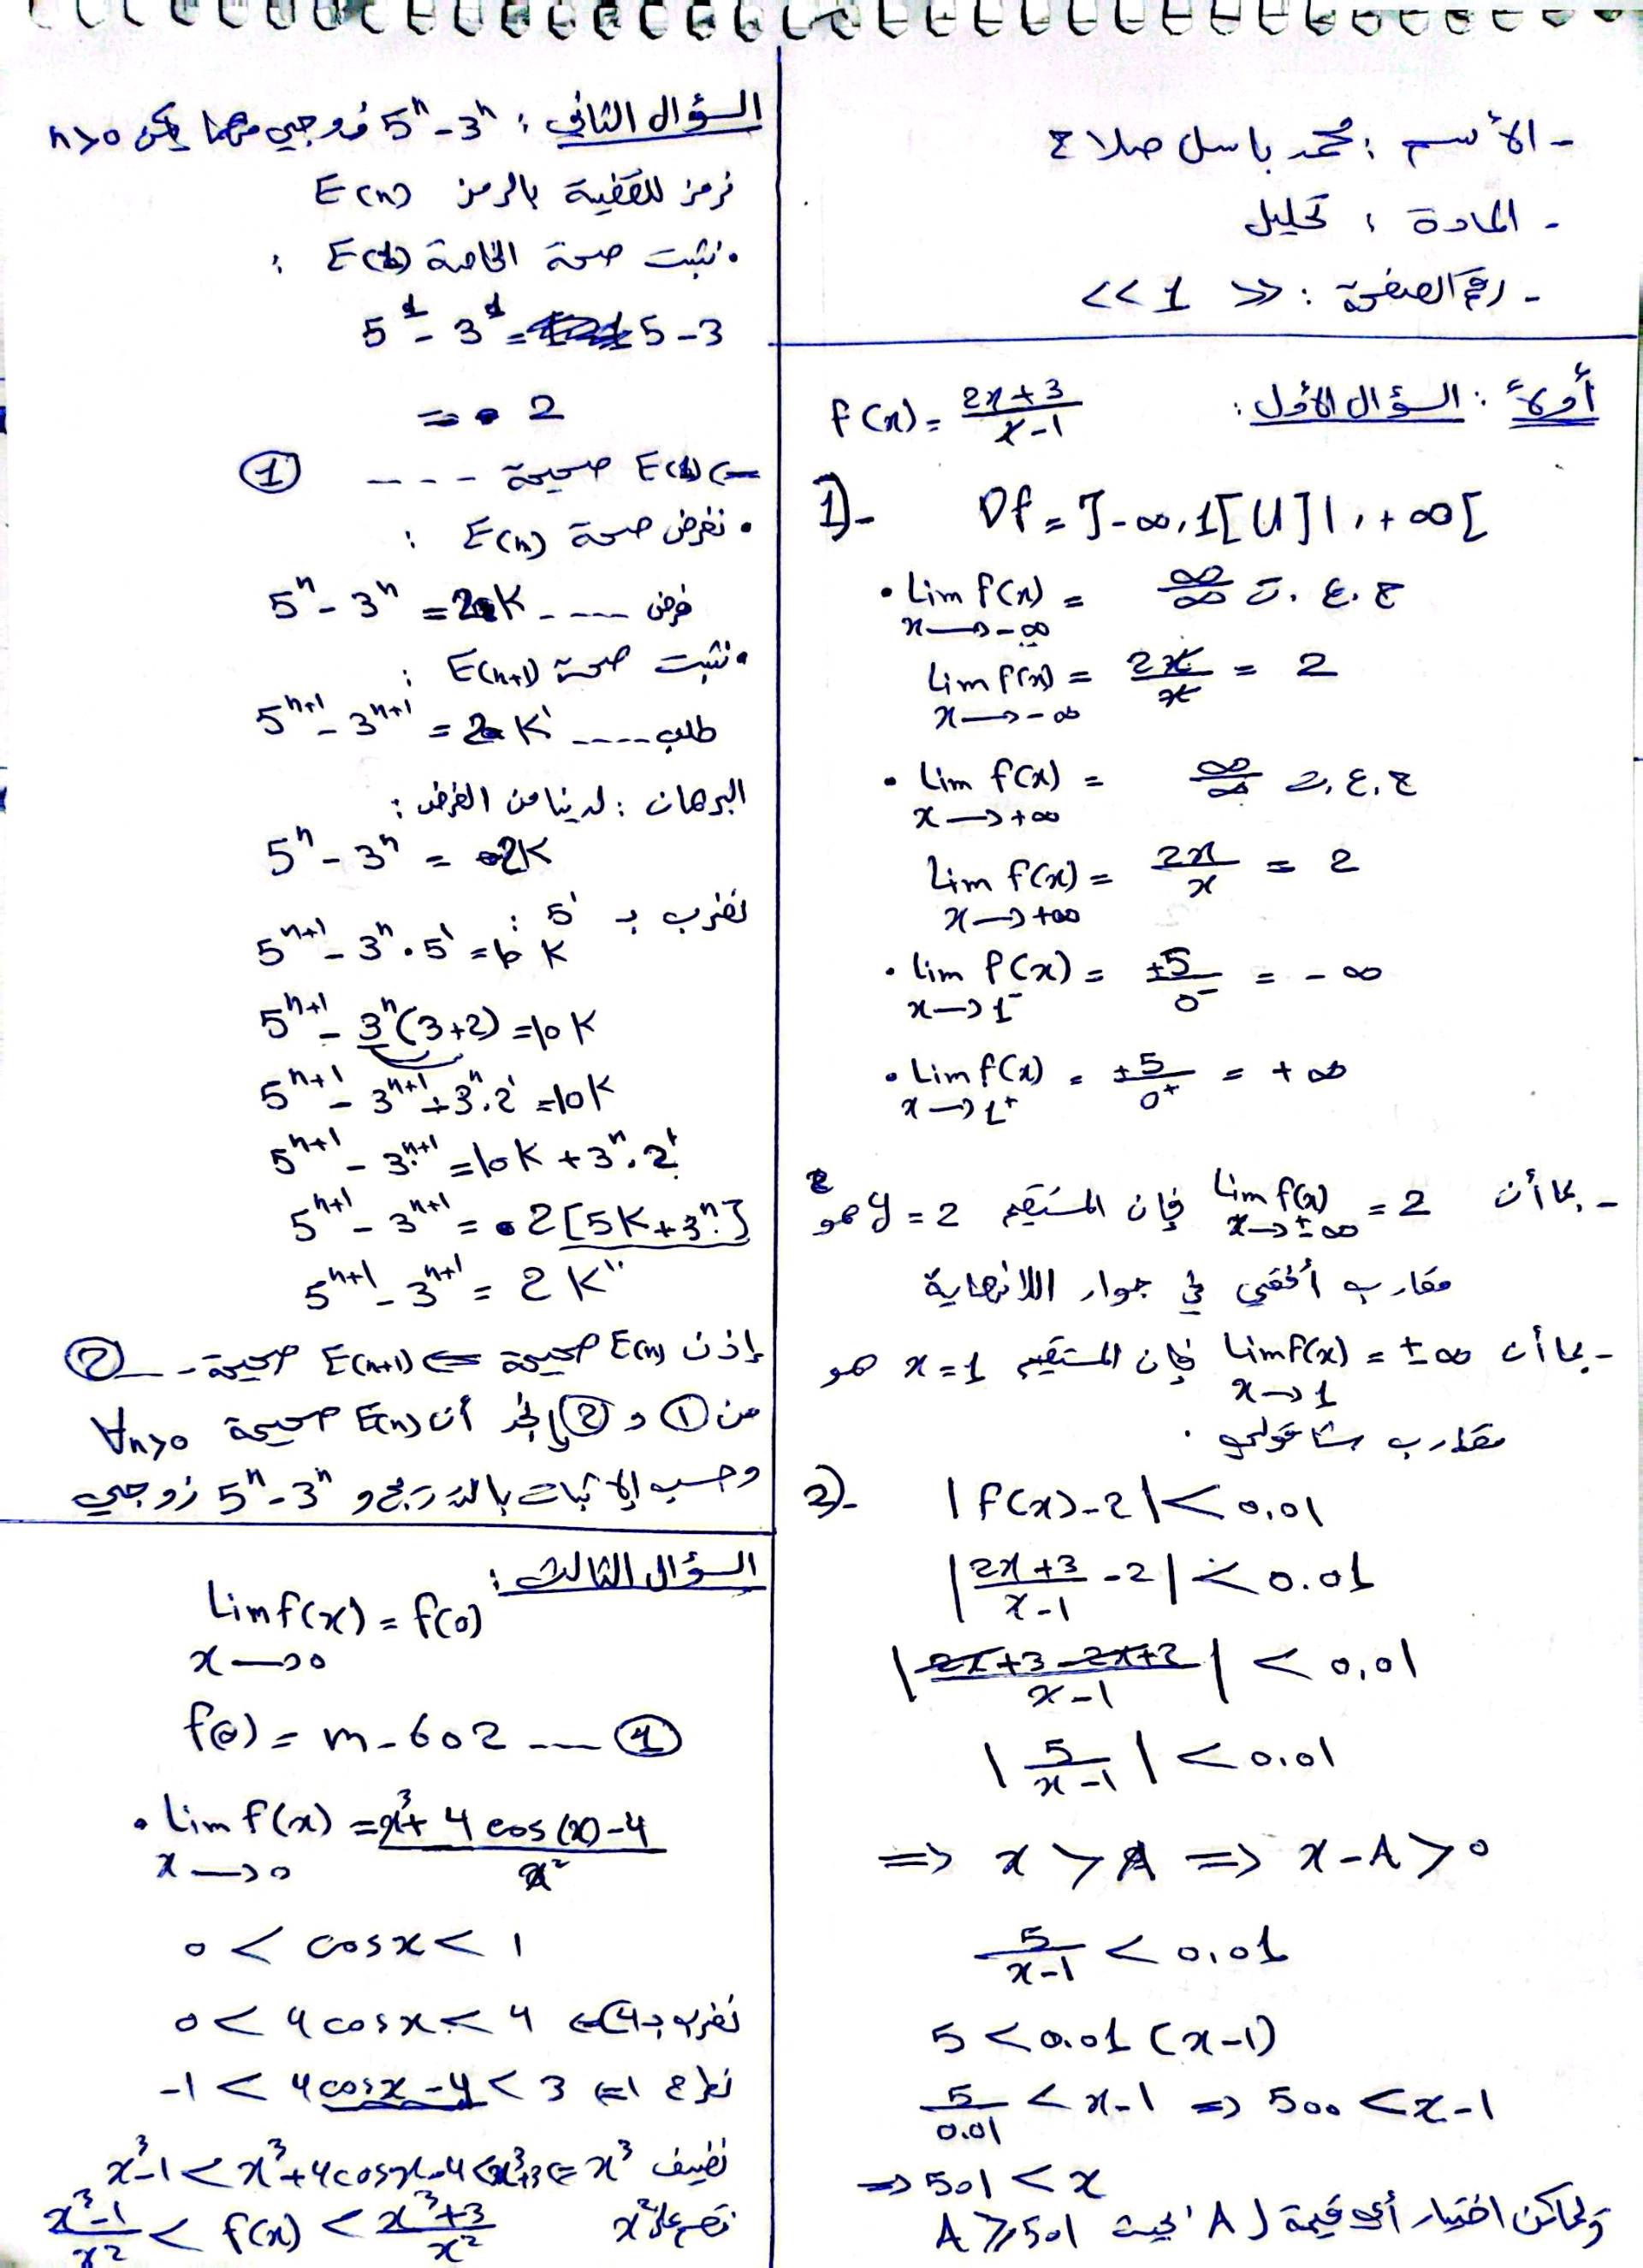 - الأسم : محمد باسل صلاح
- المادة : تحليل
- رقم الصفحة : << 1 >>
أولاً : السؤال الأول : f(x) = \frac{2x+3}{x-1}
1)- Df = ]-∞, 1[ U ]1, +∞[
• lim_{x→-∞} f(x) = \frac{∞}{∞} ح.ع.ت
lim_{x→-∞} f(x) = \frac{2x}{x} = 2
• lim_{x→+∞} f(x) = \frac{∞}{∞} ح.ع.ت
lim_{x→+∞} f(x) = \frac{2x}{x} = 2
• lim_{x→1^-} f(x) = \frac{+5}{0^-} = -∞
• lim_{x→1^+} f(x) = \frac{+5}{0^+} = +∞
- بما أن lim_{x→±∞} f(x) = 2 فإن المستقيم y = 2 هو
مقارب أفقي في جوار اللانهاية
- بما أن lim_{x→1} f(x) = ±∞ فإن المستقيم x = 1 هو
مقارب شاقولي .
2)- |f(x)-2| < 0,01
|\frac{2x+3}{x-1} - 2| < 0.01
|\frac{2x+3-2x+2}{x-1}| < 0,01
|\frac{5}{x-1}| < 0,01
=> x > A => x-A > 0
\frac{5}{x-1} < 0,01
5 < 0.01 (x-1)
\frac{5}{0.01} < x-1 => 500 < x-1
=> 501 < x
ويمكن اختيار أي قيمة لـ A بحيث A ≥ 501
السؤال الثاني : 5^n - 3^n زوجي مهما يكن n>0
نرمز للقضية بالرمز E(n)
• نثبت صحة الخاصة E(1) :
5^1 - 3^1 = 5-3
= 2
=> E(1) صحيحة ---- ①
• نفرض صحة E(n) :
5^n - 3^n = 2K ---- فرض
• نثبت صحة E(n+1) :
5^{n+1} - 3^{n+1} = 2K' ---- طلب
البرهان : لدينا من الفرض :
5^n - 3^n = 2K
نضرب بـ 5^1 :
5^{n+1} - 3^n . 5^1 = 10 K
5^{n+1} - 3^n (3+2) = 10 K
5^{n+1} - 3^{n+1} + 3^n . 2^1 = 10K
5^{n+1} - 3^{n+1} = 10K + 3^n . 2^1
5^{n+1} - 3^{n+1} = 2[5K+3^n]
5^{n+1} - 3^{n+1} = 2K''
إذن E(n) صحيحة <= E(n+1) صحيحة -- ②
من ① و ② نجد أن E(n) صحيحة ∀n>0
وحسب الإثبات بالتدريج 5^n - 3^n زوجي
السؤال الثالث :
lim_{x→0} f(x) = f(0)
f(0) = m - 602 --- ①
• lim_{x→0} f(x) = \frac{x^3 + 4 cos(x) - 4}{x^2}
0 < cosx < 1
نضرب بـ 4 <= 0 < 4cosx < 4
نطرح 1 <= -1 < 4cosx-4 < 3
نضيف x^3 <= x^3-1 < x^3+4cosx-4 < x^3+3
نقسم على x^2 \frac{x^3-1}{x^2} < f(x) < \frac{x^3+3}{x^2}